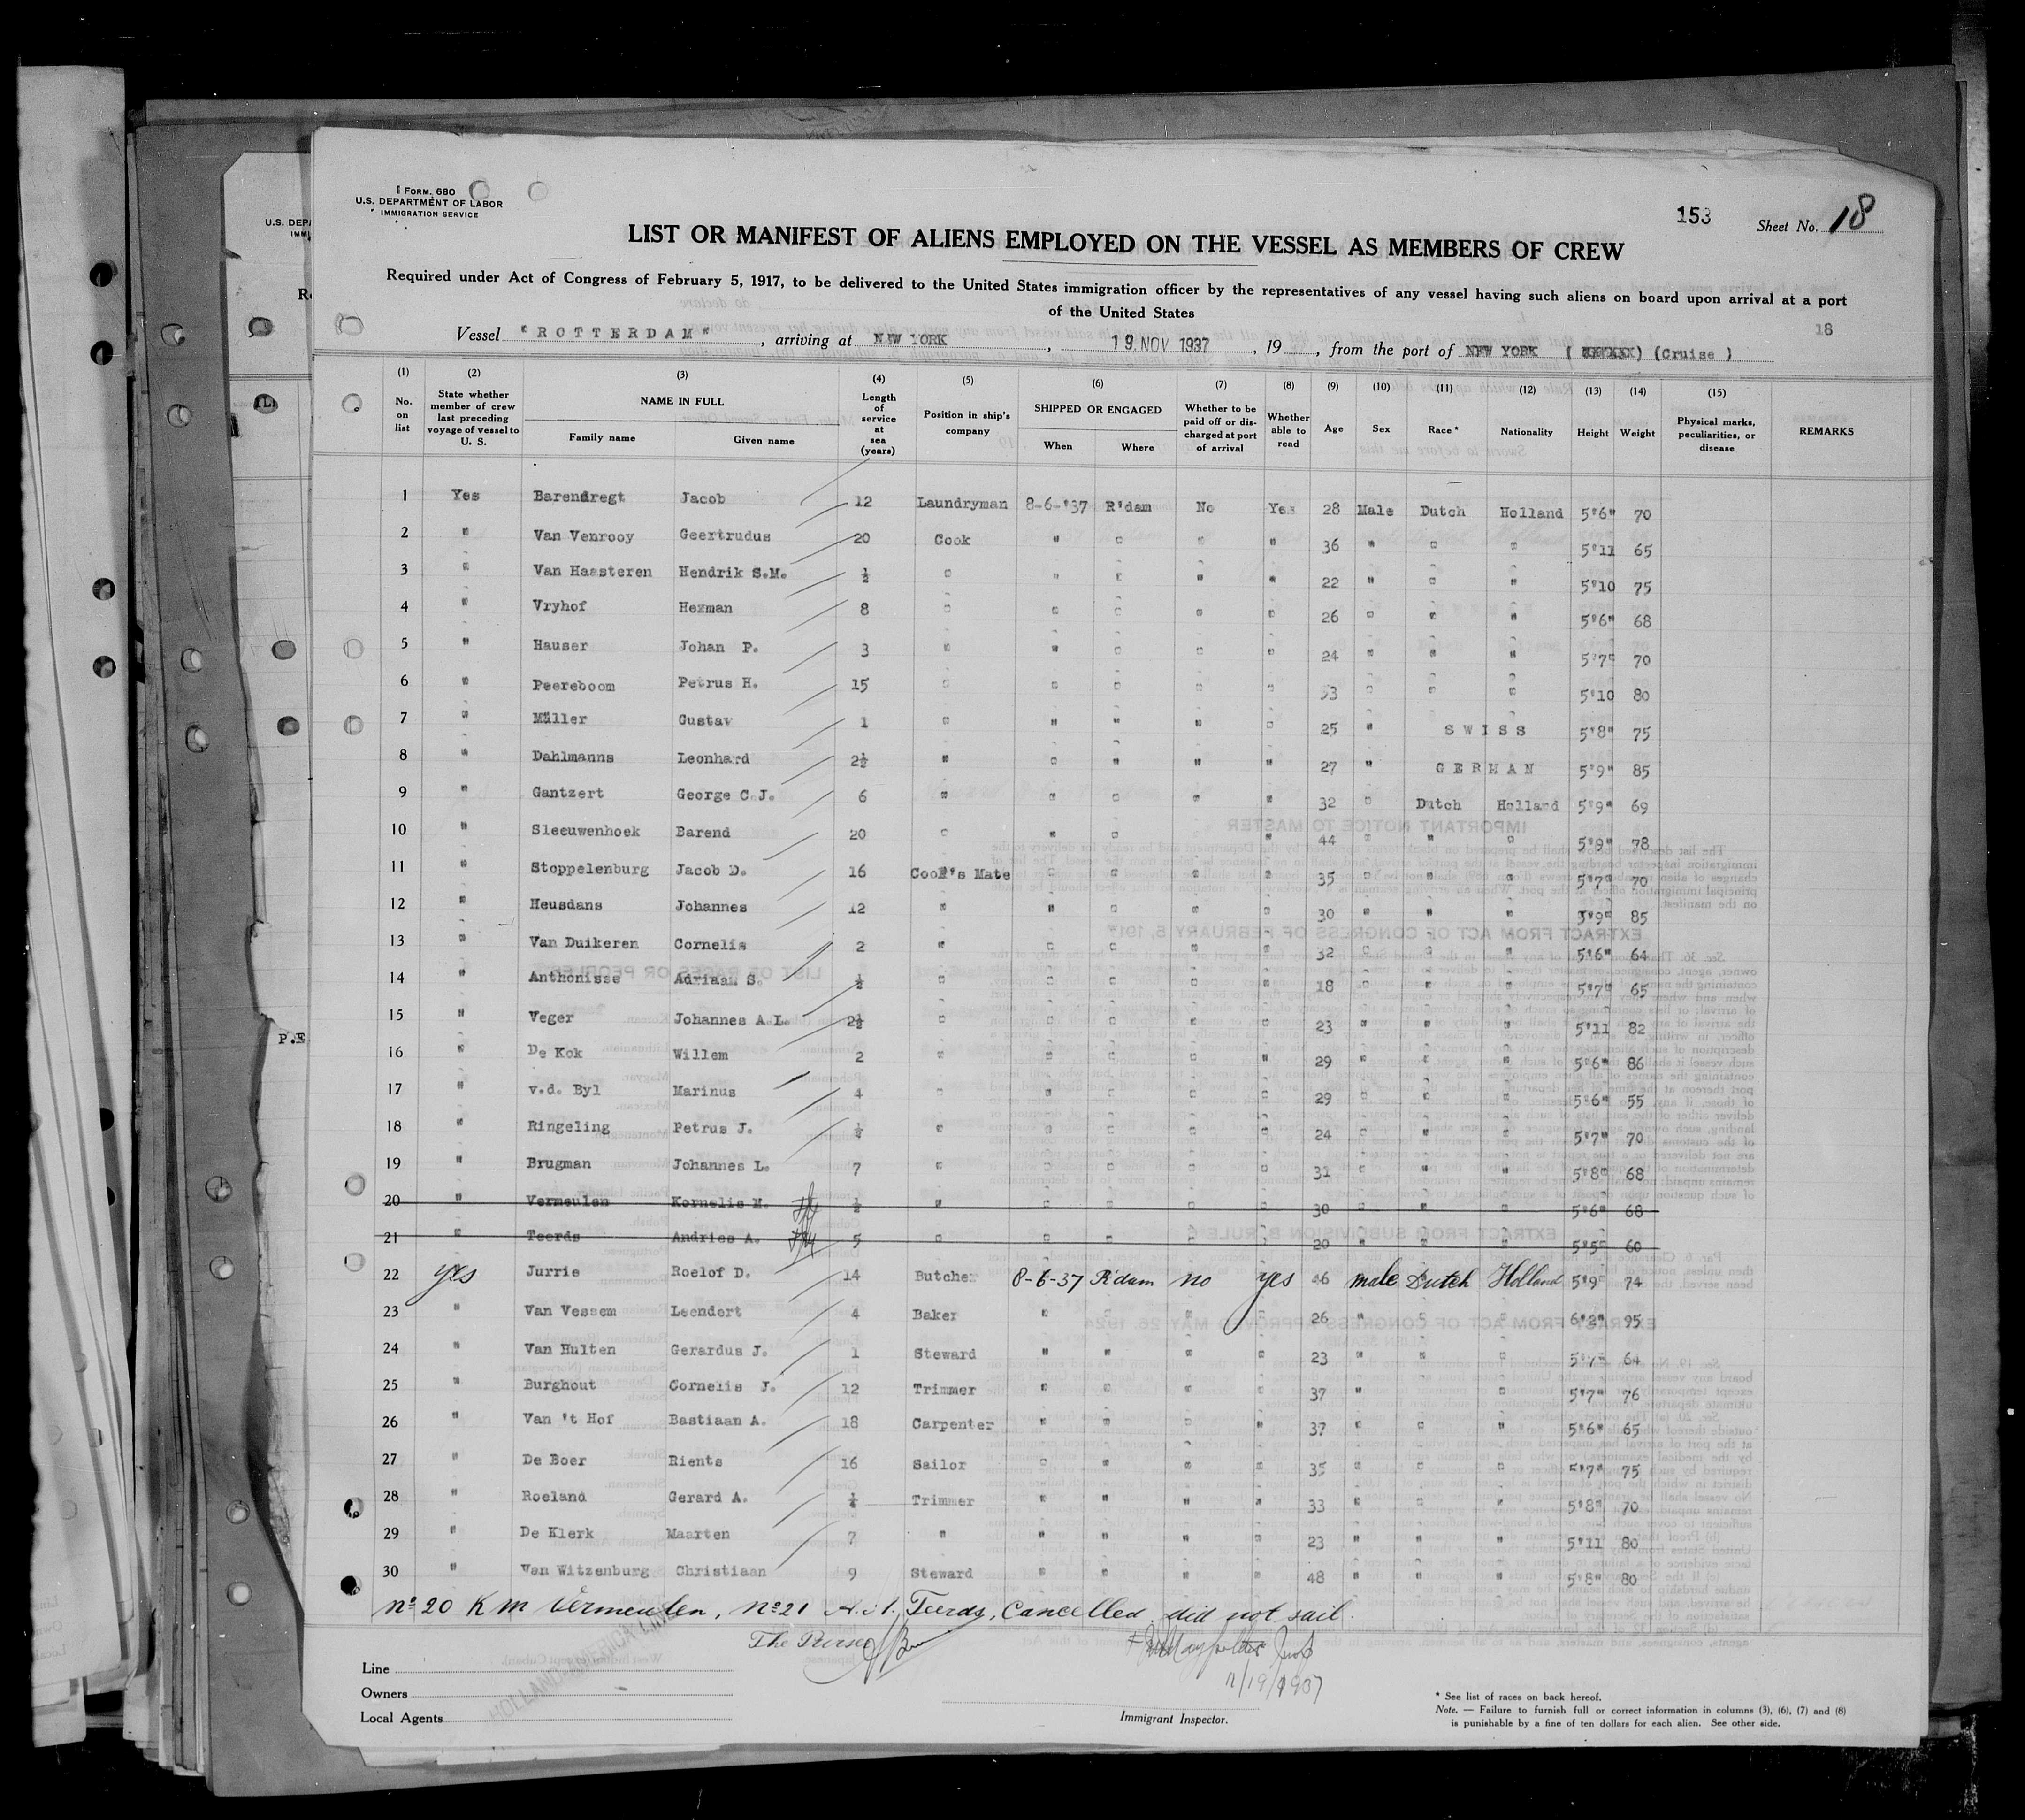 FORM. 680
U.S. DEPARTMENT OF LABOR
IMMIGRATION SERVICE
153 Sheet No. 18
LIST OR MANIFEST OF ALIENS EMPLOYED ON THE VESSEL AS MEMBERS OF CREW
Required under Act of Congress of February 5, 1917, to be delivered to the United States immigration officer by the representatives of any vessel having such aliens on board upon arrival at a port
of the United States
18
Vessel "ROTTERDAM", arriving at NEW YORK, 19 NOV 1937, 19, from the port of NEW YORK ( ) (Cruise )
(1) (2) (3) (4) (5) (6) (7) (8) (9) (10) (11) (12) (13) (14) (15)
No. on list
State whether member of crew last preceding voyage of vessel to U. S.
NAME IN FULL
Family name Given name
Length of service at sea (years)
Position in ship's company
SHIPPED OR ENGAGED
When Where
Whether to be paid off or discharged at port of arrival
Whether able to read
Age Sex Race* Nationality Height Weight
Physical marks, peculiarities, or disease
REMARKS
1 Yes Barendregt Jacob 12 Laundryman 8-6-'37 R'dam No Yes 28 Male Dutch Holland 5'6" 70
2 " Van Venrooy Geertrudus 20 Cook " " " " 36 " " " 5'11 65
3 " Van Haasteren Hendrik S.M. ½ " " " " " 22 " " " 5'10 75
4 " Vryhof Herman 8 " " " " " 26 " " " 5'6" 68
5 " Hauser Johan P. 3 " " " " " 24 " " " 5'7" 70
6 " Peereboom Petrus H. 15 " " " " " 53 " " " 5'10 80
7 " Müller Gustav 1 " " " " " 25 " SWISS 5'8" 75
8 " Dahlmanns Leonhard 2½ " " " " " 27 " GERMAN 5'9" 85
9 " Gantzert George C.J. 6 " " " " " 32 " Dutch Holland 5'9" 69
10 " Sleeuwenhoek Barend 20 " " " " 44 " " " 5'9" 78
11 " Stoppelenburg Jacob D. 16 Cook's Mate " " " " 35 " " " 5'7" 70
12 " Heusdans Johannes 12 " " " " " 30 " " " 5'9" 85
13 " Van Duikeren Cornelis 2 " " " " " 32 " " " 5'6" 64
14 " Anthonisse Adriaan S. ½ " " " " " 18 " " " 5'7" 65
15 " Veger Johannes A.L. 2½ " " " " " 23 " " " 5'11 82
16 " De Kok Willem 2 " " " " " 29 " " " 5'6" 86
17 " v.d. Byl Marinus 4 " " " " " 29 " " " 5'6" 55
18 " Ringeling Petrus J. ½ " " " " " 24 " " " 5'7" 70
19 " Brugman Johannes L. 7 " " " " " 31 " " " 5'8" 68
20 " Vermeulen Kornelis M. ½ " " " " " 30 " " " 5'6" 68
21 " Teerds Andries A. 5 " " " " " 20 " " " 5'5" 60
22 yes Jurrie Roelof D. 14 Butcher 8-6-37 R'dam no yes 46 male Dutch Holland 5'9" 74
23 " Van Vessem Leendert 4 Baker " " " " 26 " " " 6'2" 95
24 " Van Hulten Gerardus J. 1 Steward " " " " 23 " " " 5'7" 64
25 " Burghout Cornelis J. 12 Trimmer " " " " 37 " " 5'7" 76
26 " Van 't Hof Bastiaan A. 18 Carpenter " " " " 37 " " " 5'6" 65
27 " De Boer Rients 16 Sailor " " " " 35 " " " 5'7" 75
28 " Roeland Gerard A. Trimmer " " " " 33 " " " 5'8" 70
29 " De Klerk Maarten 7 " " " " " 23 " " " 5'11 80
30 " Van Witzenburg Christiaan 9 Steward " " " " 48 " " " 5'8" 80
No 20 K M Vermeulen, No 21 Teerds, Cancelled did not sail.
The Purser
11/19/1937
HOLLAND-AMERICA LINE
Line
Owners
Local Agents
Immigrant Inspector.
* See list of races on back hereof.
Note. — Failure to furnish full or correct information in columns (3), (6), (7) and (8)
is punishable by a fine of ten dollars for each alien. See other side.